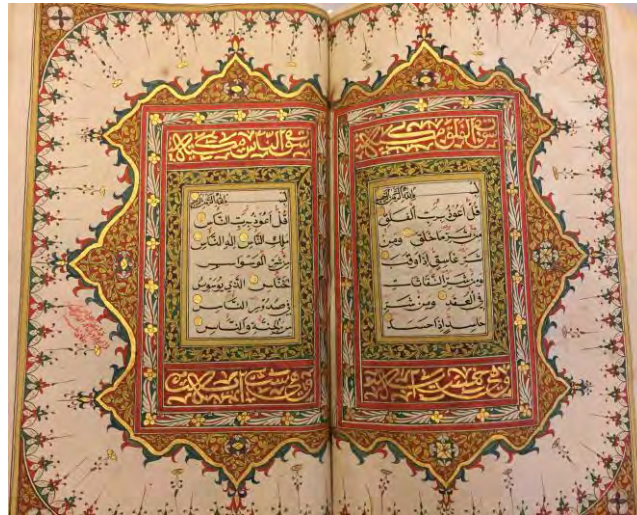 سورة الفلق مكية
بسم الله الرحمن الرحيم
قل اعوذ برب الفلق
من شر ما خلق ومن
شر غاسق اذا وقب
ومن شر النفاثات
في العقد ومن شر
حاسد اذا حسد
سورة الناس مكية
بسم الله الرحمن الرحيم
قل اعوذ برب الناس
ملك الناس اله الناس
من شر الوسواس
الخناس الذي يوسوس
في صدور الناس
من الجنة والناس